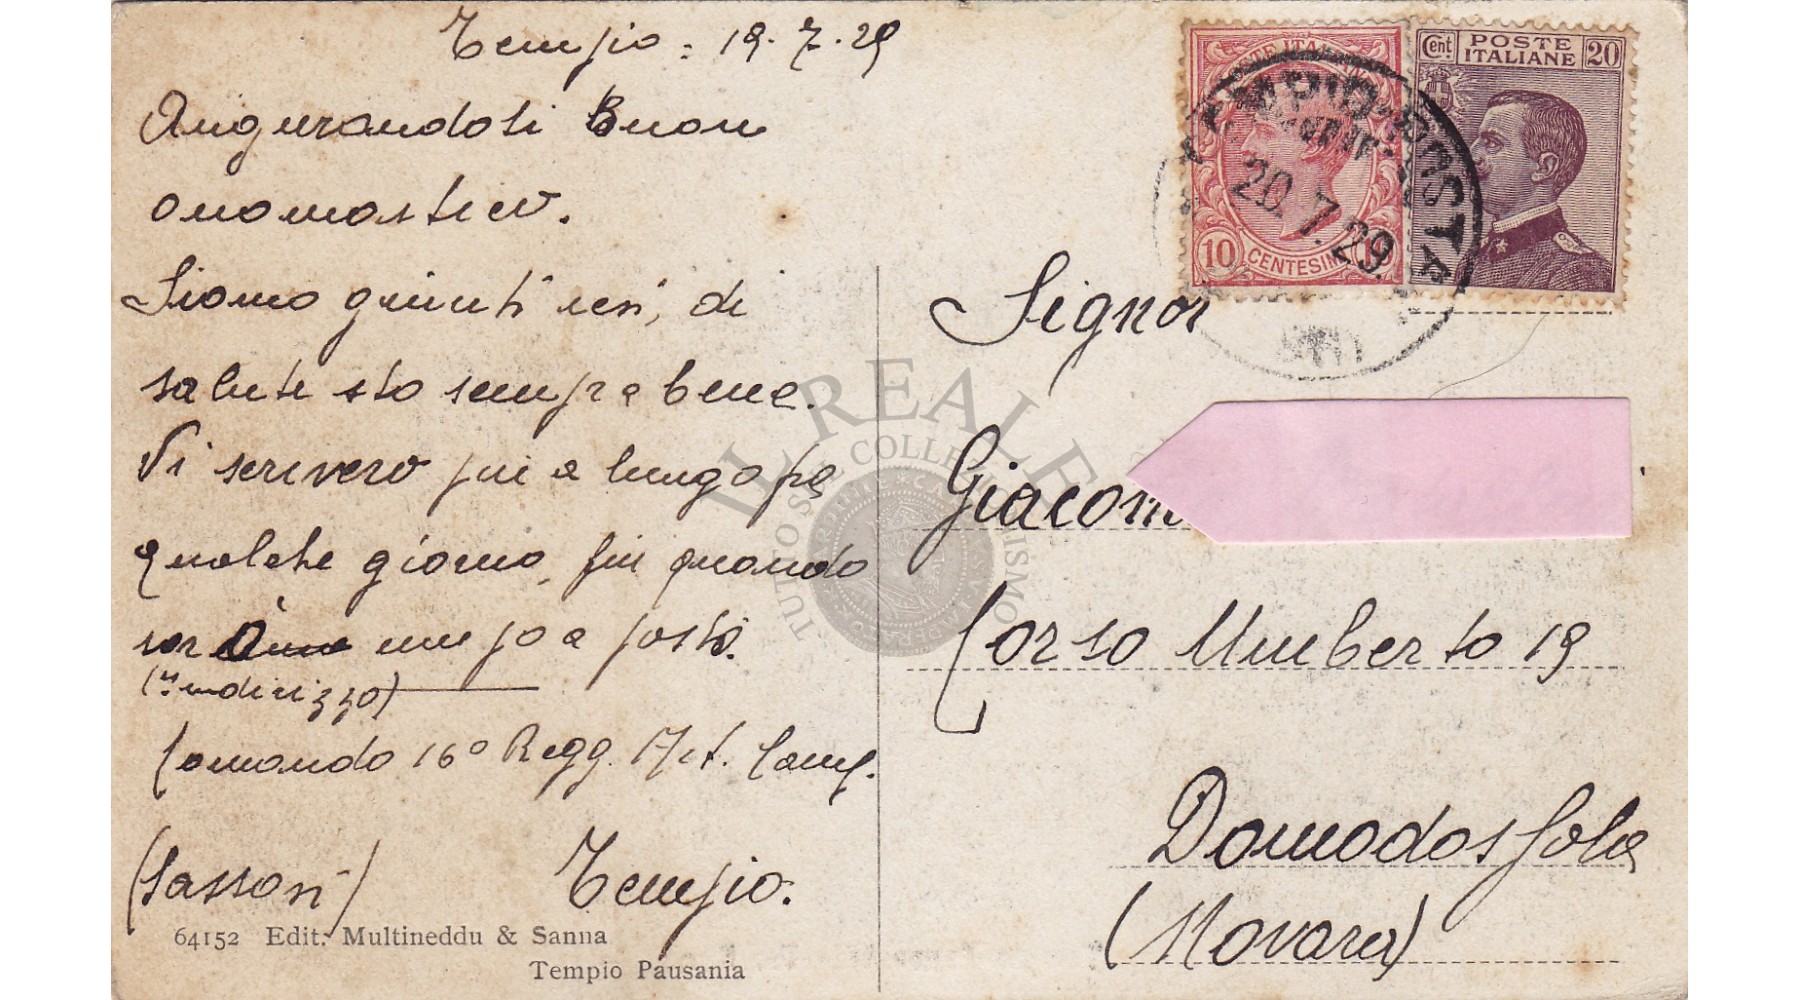 Tempio : 19.7.29
Augurandoti Buon
onomastico.
Siamo giunti ieri, di
salute sto sempre bene.
Vi scriverò più a lungo fra
qualche giorno, fin quando
sarò un po a posto.
(indirizzo)
Comando 16º Regg. Art. Camp.
(Sassari) Tempio.
64152 Edit. Multineddu & Sanna
Tempio Pausania
POSTE ITALIANE
10 CENTESIMI
Cent. POSTE ITALIANE 20
20.7.29
Signor
Giacom
Corso Umberto 19
Domodossola
(Novara)
IL REALE
TUTTO SUL COLLEZIONISMO